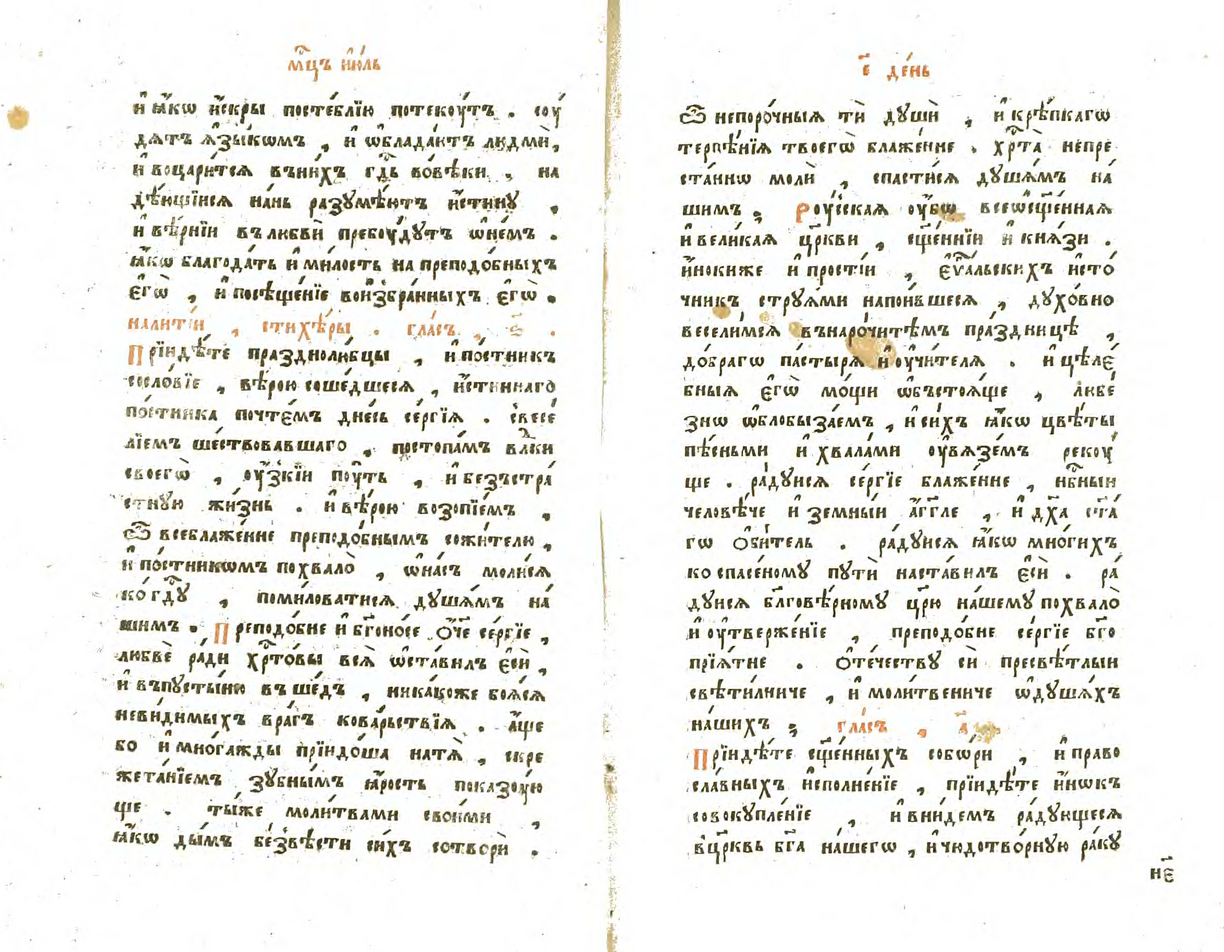 мц҃ъ ию́ль
и҆ ꙗ҆́кѡ и҆́скры постеблїю потекꙋ́тъ . соу́
дѧтъ ѧ҆зы́кѡмъ , и҆ ѡ҆блада́ютъ людмѝ,
и҆ воцари́тсѧ въни́хъ гдⷭ҇ь вовѣ́ки , на
дѣ́ющїисѧ на́нь разꙋмѣ́ютъ и҆́стинꙋ ,
и҆ вѣ́рнїи въ любвѝ пребꙋ́дꙋтъ ѡ҆не́мъ .
ꙗ҆́кѡ благода́ть и҆ ми́лость на преподо́бныхъ
є҆гѡ̀ , и҆ посѣще́нїе воизбра́нныхъ є҆гѡ̀ .
налитїи , стихѣ́ры . гла́съ , є҃ .
Прїидѣ́те празднолю́бцы , и҆ по́стникъ
сосло́вїе , вѣ́рою соше́дшесѧ , и҆́стиннаго
по́стника почте́мъ дне́сь се́ргїѧ . свесе́
лїемъ ше́ствовавшаго , постопа́мъ влⷣки
своегѡ̀ , оу҆́зкїи пꙋ́ть , и҆ безъстра́
стнꙋю жи́знь . и҆ вѣ́рою возопїе́мъ ,
Ѿ всеблаже́нне преподо́бнымъ сожи́телю ,
и҆ по́стникѡмъ похвало̀ , ѡ҆на́съ моли́сѧ
ко гдⷭ҇ꙋ , поми́ловатисѧ дꙋша́мъ на́
шимъ . Преподо́бне и҆ бг҃оно́се ѻ҆́ч҃е се́ргїе ,
любвѐ ра́ди хрⷭ҇то́вы всѧ̑ ѡ҆ста́вилъ є҆сѝ ,
и҆ въпꙋсты́ню въ ше́дъ , ника́коже боѧ́сѧ
неви́димыхъ вра́гъ кова́рьствїѧ . а҆́ще
бо и҆ мно́гажды прїидо́ша натѧ̀ , скре
жета́нїемъ зꙋ́бнымъ ꙗ҆́рость показꙋ́ю
ще . ты́же моли́твами свои́ми ,
ꙗ҆́кѡ ды́мъ безвѣ́сти си́хъ сотворѝ .
є҃ де́нь
Ѿ непоро́чныѧ тѝ дꙋшѝ , и҆ крѣ́пкагѡ
терпѣ́нїѧ твоегѡ̀ блаже́нне . хрⷭ҇та̀ непре
ста́ннѡ молѝ , спасти́сѧ дꙋша́мъ на́
шимъ ; Роу́сскаѧ оу҆́бѡ всеѡсщ҃е́ннаѧ
и҆ вели́каѧ цр҃кви , сщ҃е́ннїи и҆ кнѧ́зи .
и҆́нокиже и҆ прості́и , є҆ѵⷢ҇а́льскихъ исто́
чникъ стрꙋѧ́ми напои́вшесѧ , дꙋхо́вно
весели́мсѧ вънаро́читѣмъ пра́здницѣ ,
до́брагѡ па́стырѧ и҆ оучи́телѧ . и҆ цѣле́
бныѧ є҆гѡ̀ мо́щи ѡ҆бъстоѧ́ще , любе́
знѡ ѡ҆блобыза́емъ , и҆ си́хъ ꙗ҆́кѡ цвѣ́ты
пѣ́сньми и҆ хвала́ми оу҆вѧзе́мъ рекꙋ́
ще . ра́дꙋисѧ се́ргїе блаже́нне , нбⷭ҇ныи
человѣ́че и҆ земны́и а҆́гг҃ле , и҆ дх҃а ст҃а́
гѡ ѻ҆би́тель . ра́дꙋисѧ ꙗ҆́кѡ мно́гихъ
ко спасе́номꙋ пꙋтѝ наста́вилъ є҆сѝ . ра́
дꙋисѧ благовѣ́рномꙋ цр҃ю на́шемꙋ похвало̀
и҆ оу҆твержє́нїе , преподо́бне се́ргїе бг҃о
прїѧ́тне . ѻ҆те́чествꙋ сѝ пресвѣ́тлыи
свѣти́лниче , и҆ моли́твениче ѡ҆дꙋша́хъ
на́шихъ ; гла́съ , а҃
Прїидѣ́те сщ҃е́нныхъ собѡ́ри , и҆ право
сла́вныхъ и҆сполне́нїе , прїидѣ́те и҆́нѡкъ
совокꙋпле́нїе , и҆ вни́демъ ра́дꙋющесѧ
въцр҃квь бг҃а на́шегѡ , и҆ чюдотво́рнꙋю ра́кꙋ
н҃є